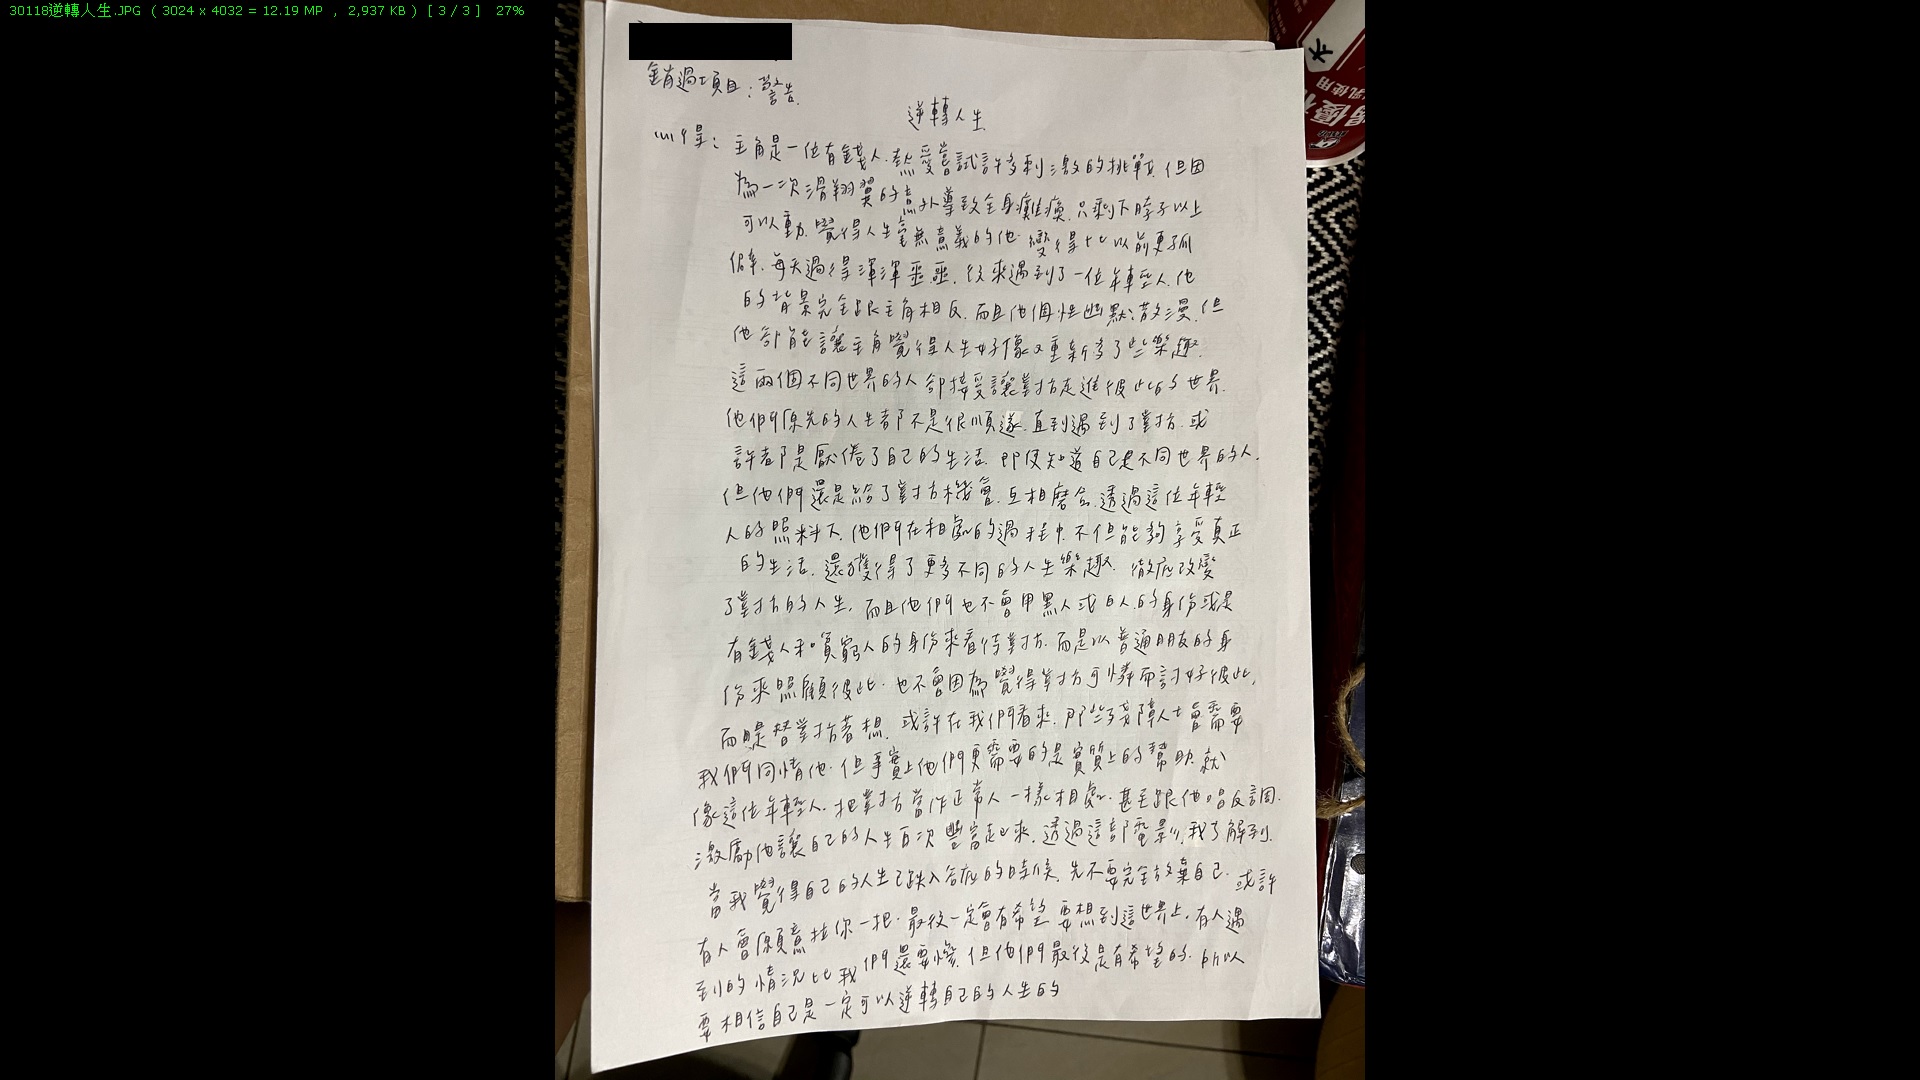 30118逆轉人生.JPG ( 3024 x 4032 = 12.19 MP , 2,937 KB ) [ 3 / 3 ] 27%
銷過項目:警告.
逆轉人生
心得: 主角是一位有錢人.熱愛嘗試許多刺激的挑戰.但因
為一次滑翔翼的意外導致全身癱瘓.只剩下脖子以上
可以動.覺得人生毫無意義的他.變得比以前更孤
僻.每天過得渾渾噩噩.後來遇到了一位年輕人.他
的背景完全跟主角相反.而且他個性幽默散漫.但
他卻能讓主角覺得人生好像又重新多了些樂趣.
這兩個不同世界的人卻接受讓對方走進彼此的世界.
他們原先的人生都不是很順遂.直到遇到了對方.或
許都是厭倦了自己的生活.即便知道自己是不同世界的人.
但他們還是給了對方機會.互相磨合.透過這位年輕
人的照料下.他們在相處的過程中.不但能夠享受真正
的生活.還獲得了更多不同的人生樂趣.徹底改變
了對方的人生.而且他們也不會用黑人或白人的身份或是
有錢人和貧窮人的身份來看待對方.而是以普通朋友的身
份來照顧彼此.也不會因為覺得對方可憐而討好彼此,
而是替對方著想.或許在我們看來.那些殘障人士會需要
我們同情他.但事實上他們更需要的是實質上的幫助.就
像這位年輕人.把對方當作正常人一樣相處.甚至跟他唱反調.
激勵他讓自己的人生再次豐富起來.透過這部電影.我了解到.
當我覺得自己的人生已跌入谷底的時候.先不要完全放棄自己.或許
有人會願意拉你一把.最後一定會有希望.要想到這世界上.有人遇
到的情況比我們還要慘.但他們最後是有希望的.所以
要相信自己是一定可以逆轉自己的人生的
優
乳使用